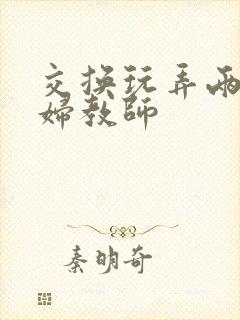 交换玩弄兩
婦教師
秦明奇